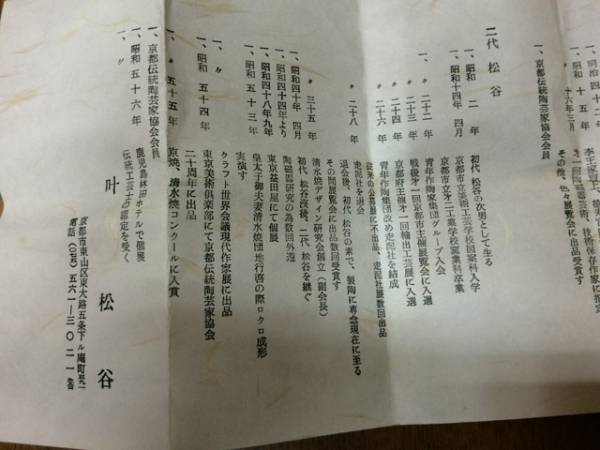 その他、色々展覧会に出品受賞す
一、京都伝統陶芸家協会会員
二代 松谷
一、昭和 二 年 初代 松谷の次男として生る
一、昭和十四年 四月 京都市立美術工芸学校図案科入学
京都市立才二工業学校窯業科卒業
一、〃 二十二年 青年作陶家集団グループ入会
戦後才一回京都市主催展覧会に入選
〃 二十四年 京都府主催才一回輸出工芸展に入選
〃 二十六年 青年作陶集団改め走泥社を結成
従来の公募展に不出品、走泥社展数回出品
〃 二十八年 走泥社を退会
退会後、初代 松谷の素で、製陶に専念現在に至る
その間展覧会に出品数回受賞す
〃 三十五年 清水焼デザイン研究会創立（副会長）
一、昭和四十年 四月 初代 松谷歿後、二代 松谷を継ぐ
一、昭和四十四年より 陶磁器研究の為数回外遊
一、昭和四十八年九年 東京益田屋にて個展
一、昭和 五十三年 皇太子御夫妻清水焼団地行啓の際ロクロ成形
実演す
一、〃 クラフト世界会議現代作家展に出品
一、昭和 五十四年 東京美術倶楽部にて京都伝統陶芸家協会
二十周年に出品
一、〃 五十五年 京焼、清水焼コンクールに入賞
一、京都伝統陶芸家協会会員
一、昭和 五十六年 鹿児島林田ホテルで個展
一、〃 伝統工芸士の認定を受く
叶 松 谷
京都市東山区東大路五条下ル
電話（075）五六一－三〇二一番